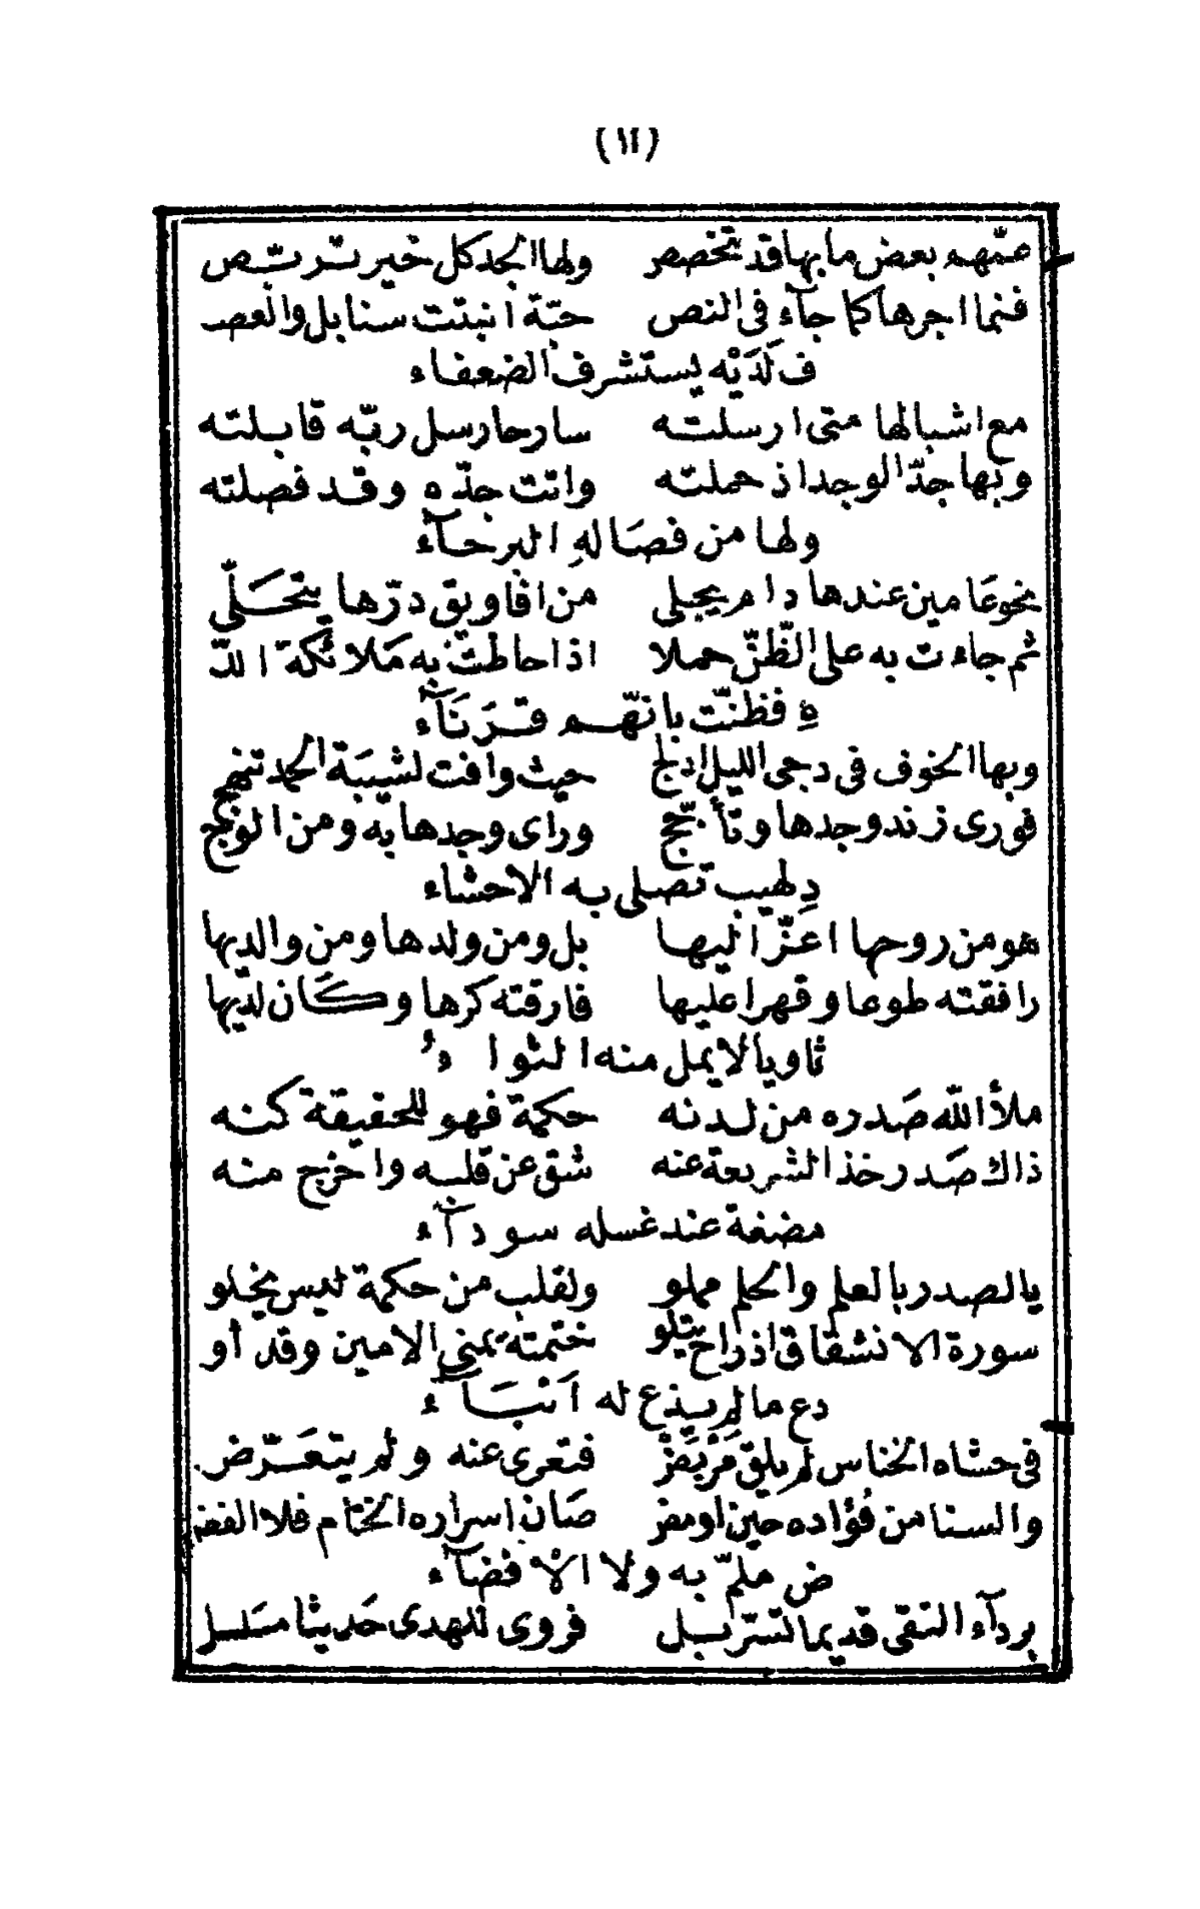 (١٢)
عمّهم بعض ما بها قد تخصص ولها الجد كل خير تربص
فنما اجرها كما جآء في النص حبّة انبتت سنابل والعص
ف لَدَيْه يستشرف الضعفاء
مع اشبالها متى ارسلته سار حا رسل ربّه قابلته
وبها جدّ الوجد اذ حملته واتت جدّه وقد فصلته
ولها من فصَالهِ البرحآء
نحوعَامين عندها دام يجلى من افاويق درّها يتحَلّى
ثم جاءت به على الظّنّ حملا اذ احاطت به مَلائكة اللّ
هِ فظنّت بانّهم قرَنَآء
وبها الخوف في دجى الليل ادلج حيث وافت لشيبَة الحمد تنهج
فورى زند وجدها وتأجّج وراى وجدها به ومن الوجج
دِ لهيب تصلى به الاحشاء
هو من روحها اعزّ اليها بل ومن ولدها ومن والديها
رافقته طوعا وقهرا عليها فارقته كرها وكان لديها
ثاويا لا يمل منه الثواءُ
ملأ الله صَدره من لدنه حكمة فهو للحقيقة كنه
ذاك صَدر خذ الشريعة عنه شق عن قلبه واخرج منه
مضغة عند غسله سودآء
يا لصدر بالعلم والحلم مملو ولقلب من حكمة ليس يخلو
سورة الانشقاق اذ راح يتلو ختمته يمنى الامين وقد أو
دع ما لم يذع له انْبَآء
في حشاه الخناس لم يلق مَرْبَضْ فتعرى عنه ولم يتعَرّض
والسنا من فُؤاده حين اومض صَان اسراره الختام فلا الفض
ض ملمّ به ولا الافضآء
بردآء التقى قديما تسربل فروى للهدى حَديثا مسَلسل